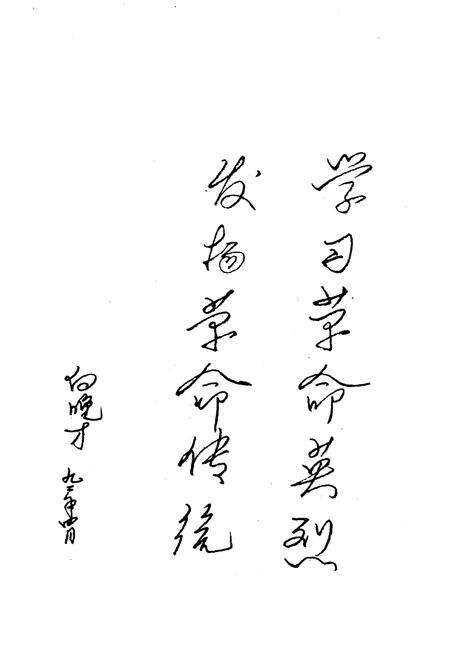 学习革命英烈
发扬革命传统
向晚才
九二年四月